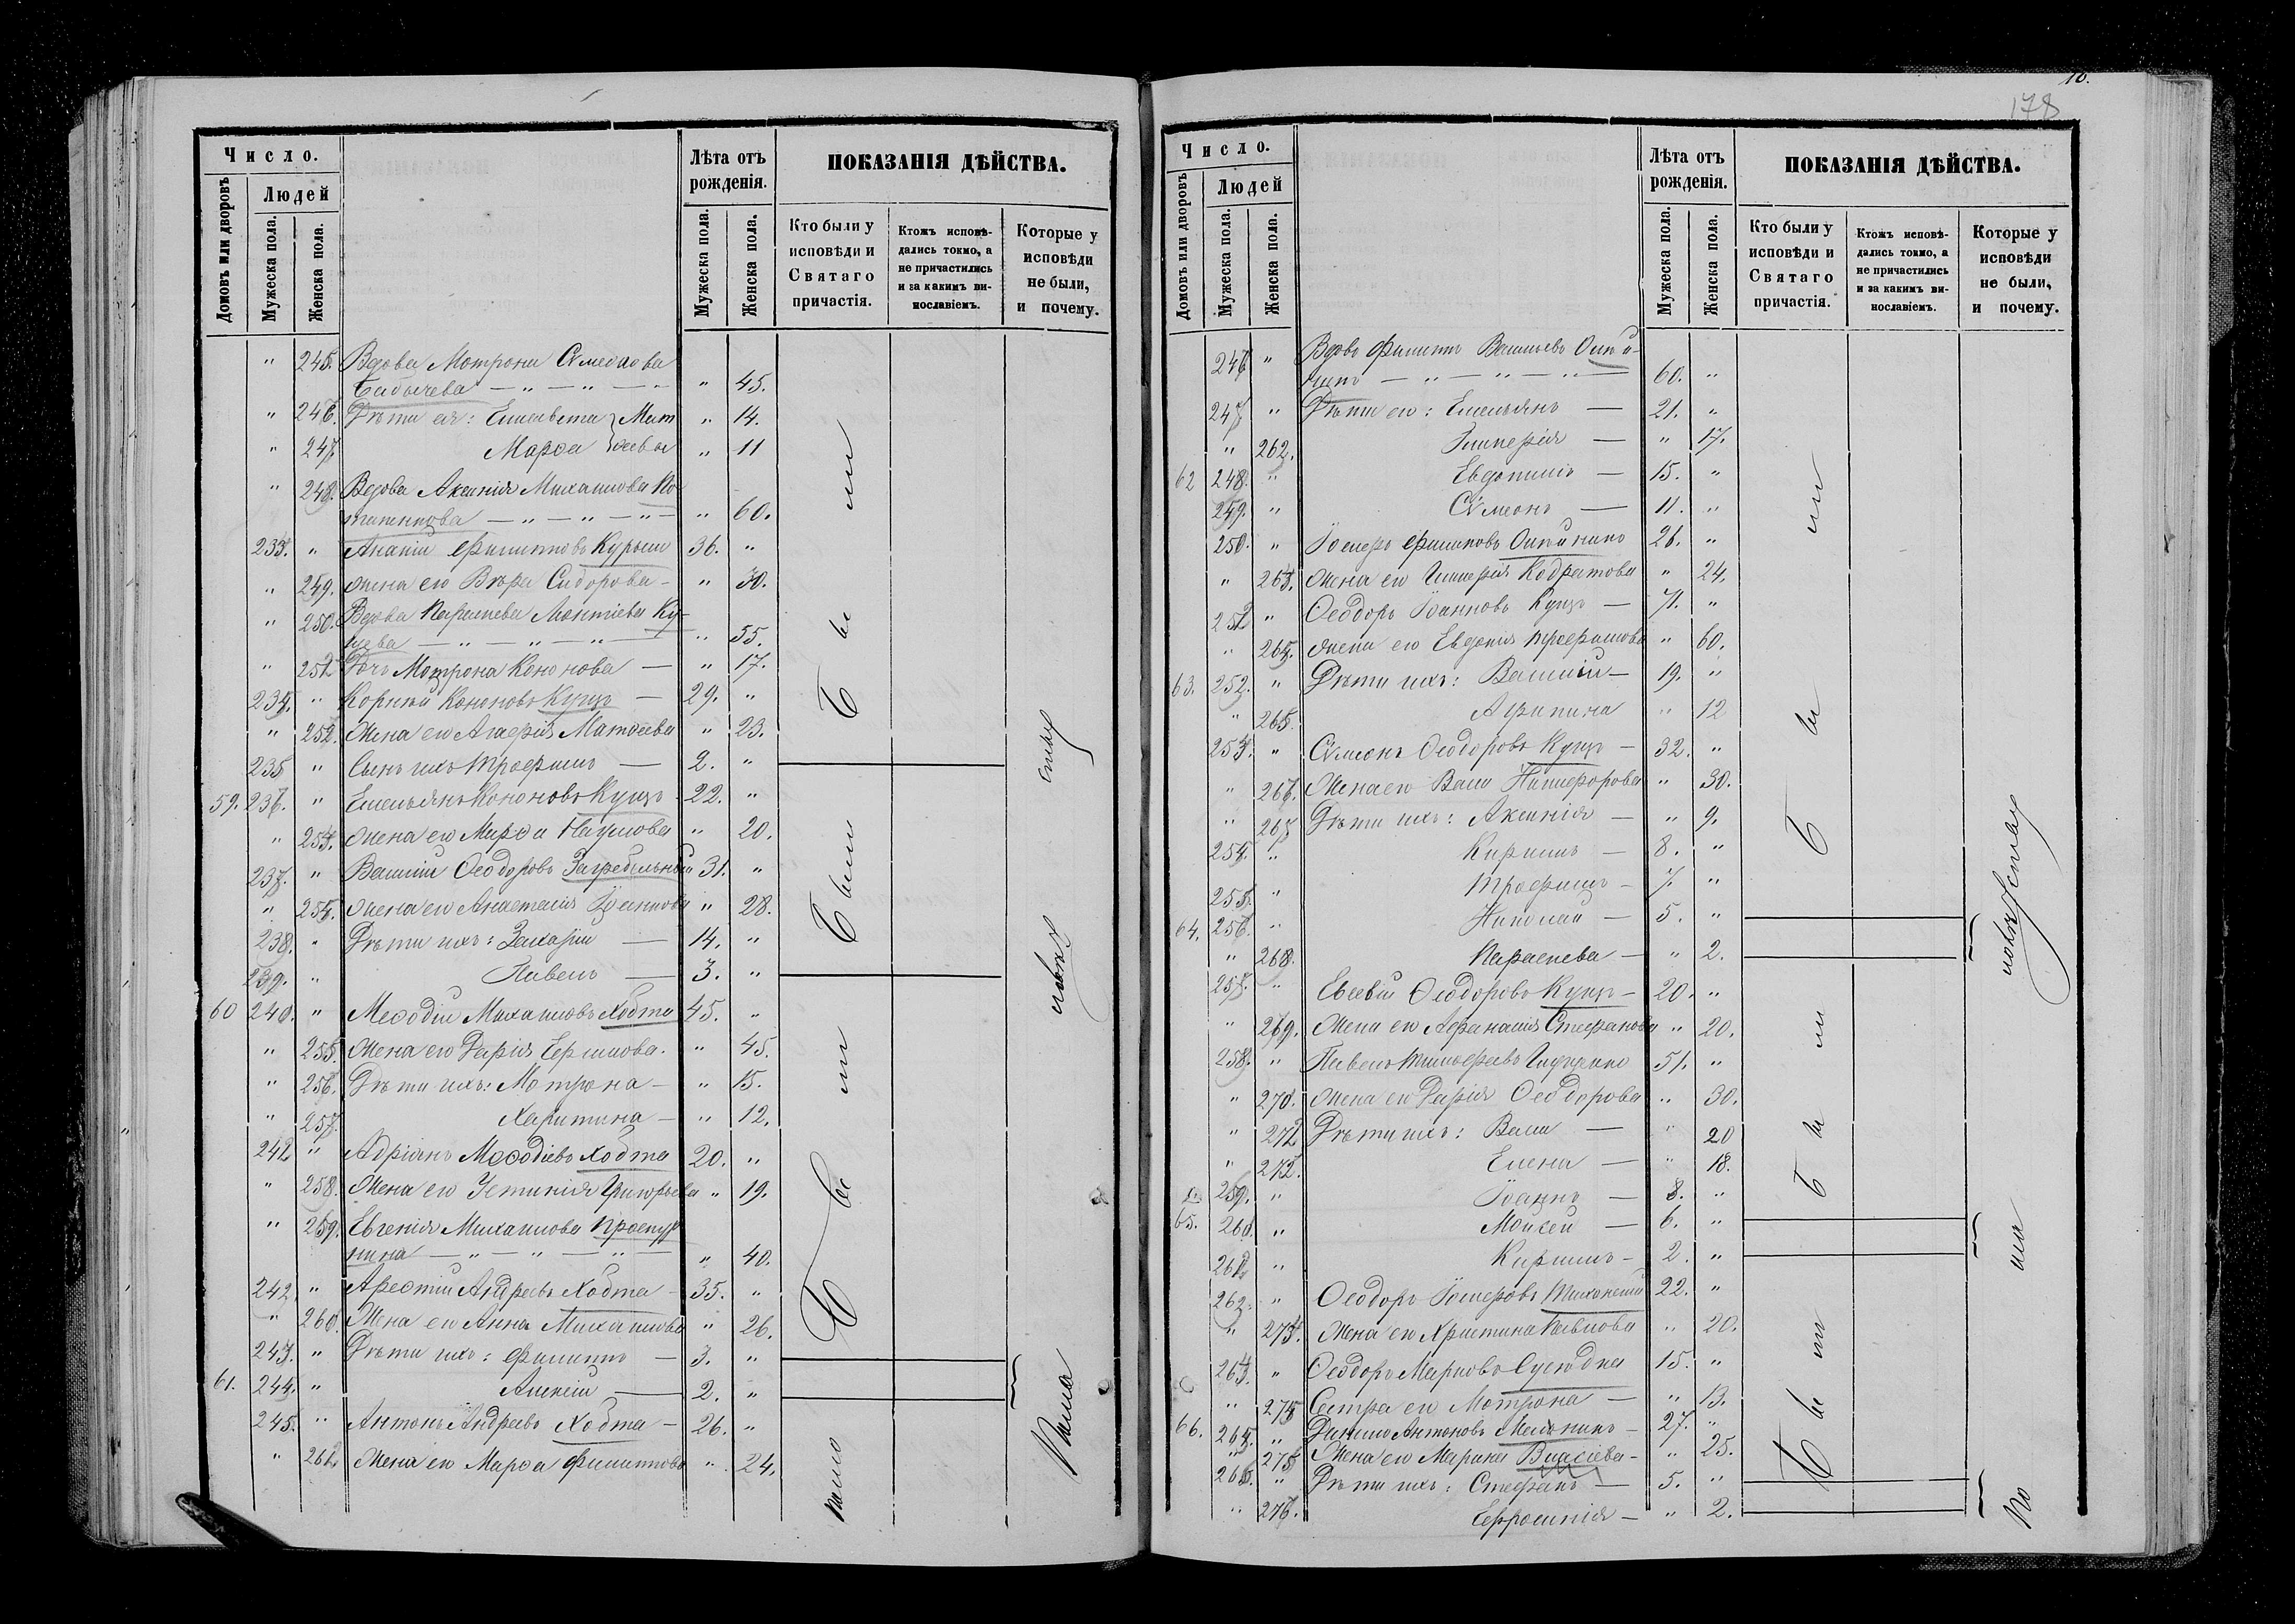 Число.
Домовъ или дворовъ
Людей
Мужеска пола.
Женска пола.
Лѣта отъ рожденія.
Мужеска пола.
Женска пола.
ПОКАЗАНІЯ ДѢЙСТВА.
Кто были у исповѣди и Святаго причастія.
Ктожъ исповѣдались токмо, а не причастились и за какимъ винословіемъ.
Которые у исповѣди не были, и почему.
" 245. Вдова Мотрона Сѵмеонова
Бабычева — " — " — " 45.
" 246. Дѣти ея: Елисавета } Мат " 14.
" 247. Марѳа } ѳеевы " 11
" 248. Вдова Аксинія Михаилова
— " — " — " 60.
233. " Ананія Филипповъ Курыш 36. "
" 249. Жена его Вѣра Сидорова — " 30.
" 250. Вдова Параскева Леонтіева Ку-
цева — " — " — " 55.
" 251. Дочь Мотрона Кононова — " 17.
234. " Корнилій Кононовъ Куцъ — 29. "
" 252. Жена его Агафія Матѳеева " 23.
235 " Сынъ ихъ Трофимъ — 2. "
59. 236. " Емельянъ Кононовъ Куцъ 22. "
" 253. Жена его Марѳа Наумова " 20.
237. " Василій Ѳеодоровъ Загребельный 31. "
" 254. Жена его Анастасія Іоаннова " 28.
238. " Дѣти ихъ: Захарій — 14. "
239. " Павелъ — 3. "
60 240. " Меѳодій Михаиловъ Хобта 45. "
" 255. Жена его Дарія Ермилова. " 45.
" 256. Дѣти ихъ: Мотрона — " 15.
" 257. Харитина — " 12.
241 " Адріанъ Меѳодіевъ Хобта 20. "
" 258. Жена его Устинія Григорьева " 19.
" 259. Евгенія Михаилова Проскур
нина — " — " — " — " 40.
242. " Арестій Андреевъ Хобта — 35. "
" 260. Жена его Анна Михаилова " 26.
243. " Дѣти ихъ: Филиппъ — 3. "
61. 244. " Алексій — 2. "
245. " Антонъ Андреевъ Хобта — 26. "
" 261. Жена его Марѳа Филиппова " 24.
10.
178
Число.
Домовъ или дворовъ
Людей
Мужеска пола.
Женска пола.
Лѣта отъ рожденія.
Мужеска пола.
Женска пола.
ПОКАЗАНІЯ ДѢЙСТВА.
Кто были у исповѣди и Святаго причастія.
Ктожъ исповѣдались токмо, а не причастились и за какимъ винословіемъ.
Которые у исповѣди не были, и почему.
246 " Вдовъ Филиппъ Васильевъ
— " — " — " — 60. "
247. " Дѣти его: Емельянъ — 21. "
" 262. Гликерія — " 17.
62 248. " Евдокимъ — 15. "
249. " Сѵмеонъ — 11. "
250. " Іосифъ Филиповъ 26. "
" 263. Жена его Гликерія Кодратова " 24.
251 " Ѳеодоръ Іоанновъ Куцъ — 71. "
" 264. Жена его Евдокія Трофимова " 60.
63. 252. " Дѣти ихъ: Василій — 19. "
" 265. Агрипина " 12
253. " Сѵмеонъ Ѳеодоровъ Куцъ — 32. "
" 266. Жена его Васса Никифорова " 30.
" 267 Дѣти ихъ: Аксинія — " 9.
254. " Кирилъ — 8. "
255. " Трофимъ — 7. "
64. 256. " Николай — 5. "
" 268. Параскева — " 2.
257. " Евсевій Ѳеодоровъ Куцъ — 20. "
" 269. Жена его Афанасія Стефанова " 20.
258. " Павелъ Тимофеевъ 51. "
" 270. Жена его Дарія Ѳеодорова " 30.
" 271 Дѣти ихъ: Васса — " 20
" 272. Елена — " 18.
259. " Іоаннъ — 8. "
65. 260. " Моисей — 6. "
261. " Кирилъ — 2. "
262. " Ѳеодоръ Іосифовъ 22. "
" 273. Жена его Христина Павлова " 20.
263. " Ѳеодоръ Марковъ 15. "
" 274 Сестра его Мотрона — " 13.
66. 264. " Данило Антоновъ Мельникъ — 27. "
" 275 Жена его Марина Власіева — " 25.
265. " Дѣти ихъ: Стефанъ — 5. "
" 276. Евфросинія — " 2.